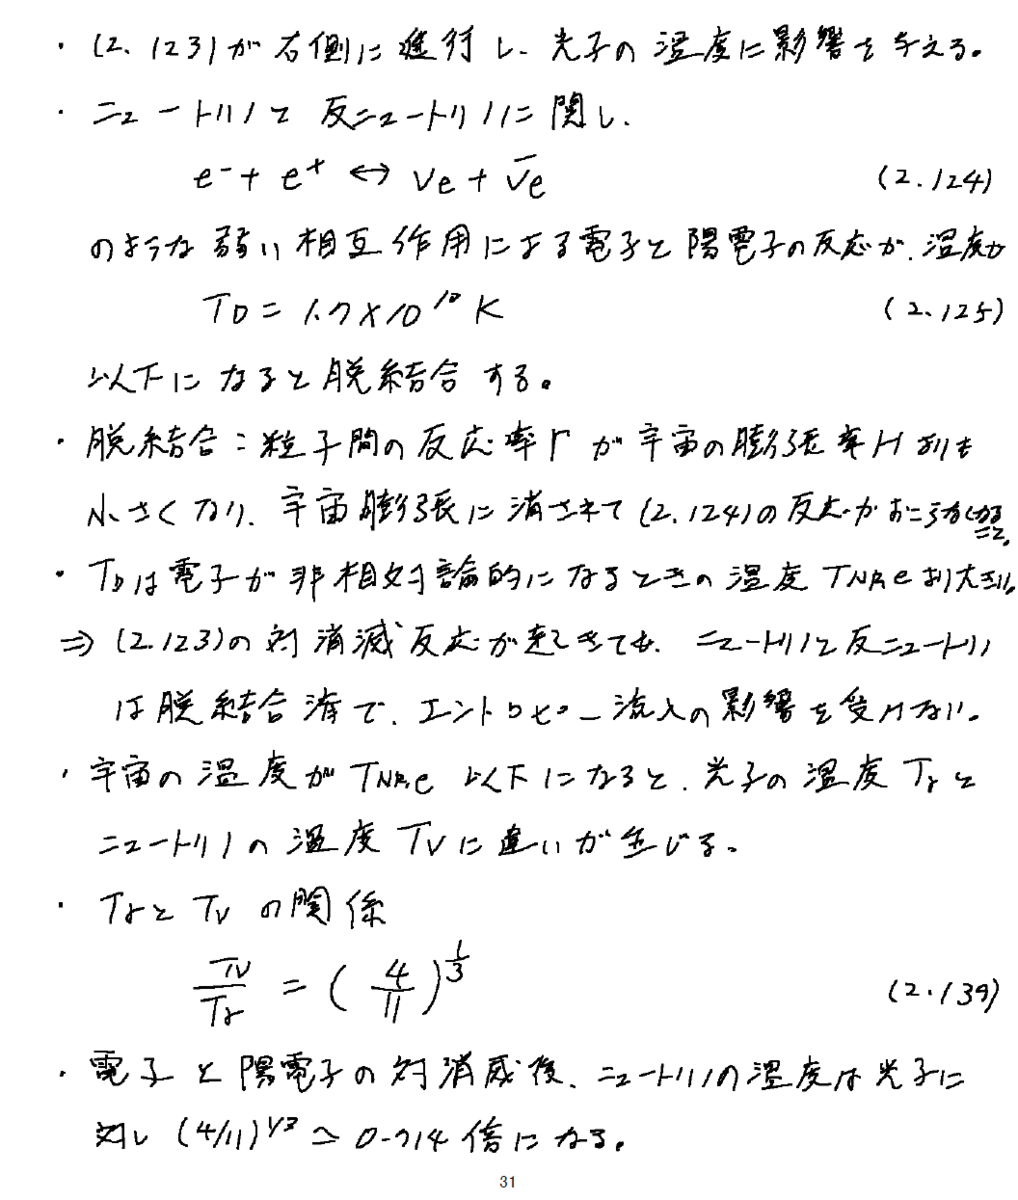 ・(2.123)が右側に進行し、光子の温度に影響を与える。
・ニュートリノと反ニュートリノに関し、
e⁻ + e⁺ ↔ νe + ν̄e (2.124)
のような弱い相互作用による電子と陽電子の反応が、温度が
TD = 1.7×10¹⁰ K (2.125)
以下になると脱結合する。
・脱結合：粒子間の反応率Γが宇宙の膨張率Hよりも
小さくなり、宇宙膨張に消されて(2.124)の反応がおこらなくなること。
・TDは電子が非相対論的になるときの温度TNR,eより大きい。
⇒(2.123)の対消滅反応が起きても、ニュートリノと反ニュートリノ
は脱結合済で、エントロピー流入の影響を受けない。
・宇宙の温度がTNR,e以下になると、光子の温度Tγと
ニュートリノの温度Tνに違いが生じる。
・TγとTνの関係
Tν/Tγ = (4/11)^(1/3) (2.139)
・電子と陽電子の対消滅後、ニュートリノの温度は光子に
対し(4/11)^(1/3) ≃ 0.714倍になる。
31